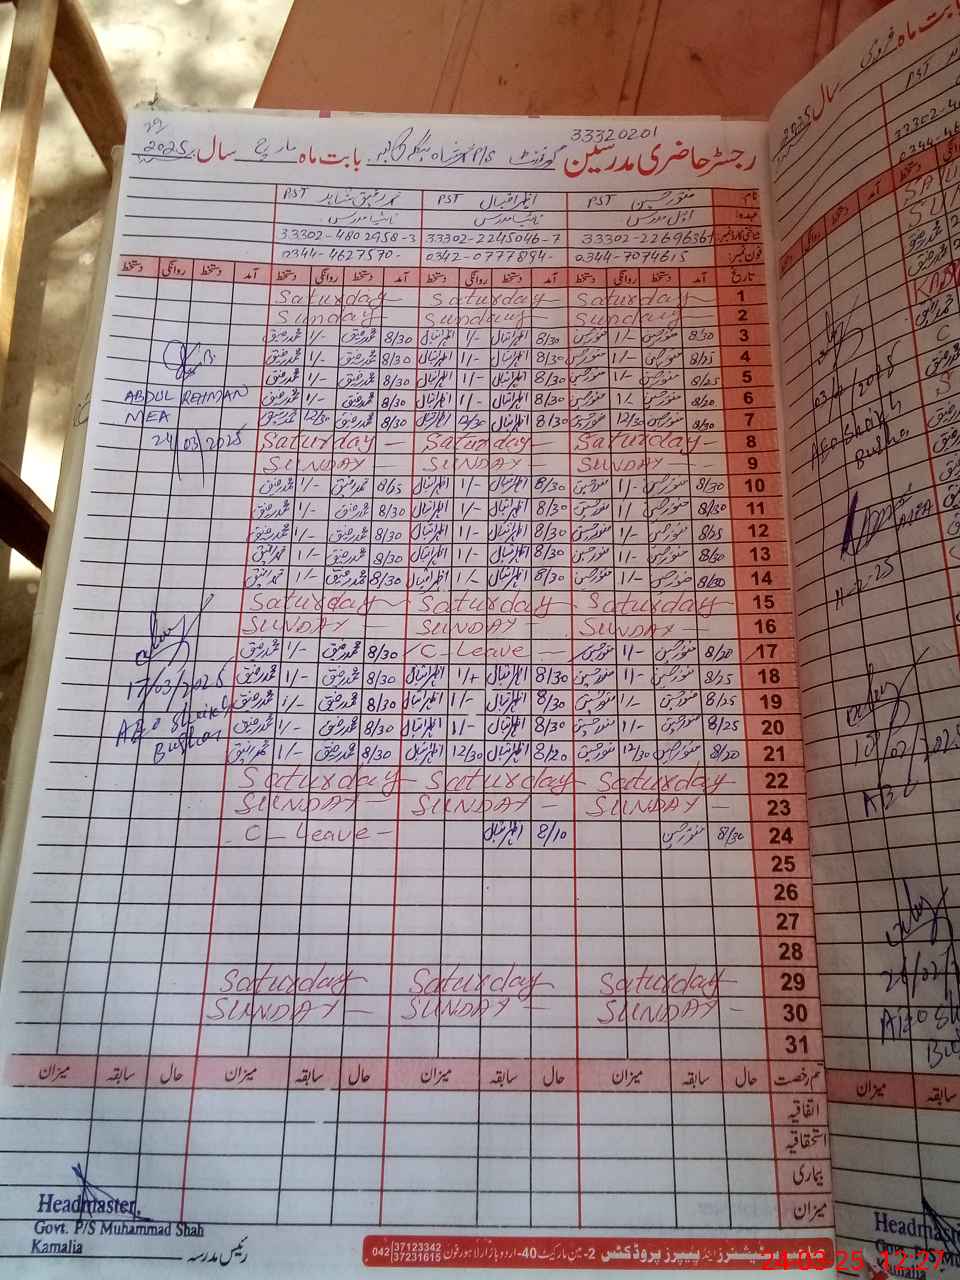 33320201
رجسٹر حاضری مدرسین گورنمنٹ P/S محمد شاہ بابت ماہ مارچ سال 2025
نام منور حسین PST اظہر اقبال PST محمد رفیق شاہد PST
عہدہ
33302-2269636 33302-2245046-7 33302-4802958-3
فون نمبر 0344-7074615 0342-0777894 0344-4627570
تاریخ آمد دستخط روانگی دستخط آمد دستخط روانگی دستخط آمد دستخط روانگی دستخط آمد دستخط روانگی دستخط
1 Saturday Saturday Saturday
2 Sunday Sunday Sunday
3 8/30 منور حسین 1/- منور حسین 8/30 اظہر اقبال 1/- اظہر اقبال 8/30 محمد رفیق 1/- محمد رفیق
4 8/25 منور حسین 1/- منور حسین 8/30 اظہر اقبال 1/- اظہر اقبال 8/30 محمد رفیق 1/- محمد رفیق
5 8/25 منور حسین 1/- منور حسین 8/30 اظہر اقبال 1/- اظہر اقبال 8/30 محمد رفیق 1/- محمد رفیق
6 8/30 منور حسین 1/- منور حسین 8/30 اظہر اقبال 1/- اظہر اقبال 8/30 محمد رفیق 1/- محمد رفیق
7 8/30 منور حسین 12/30 منور حسین 8/30 اظہر اقبال 12/30 اظہر اقبال 8/30 محمد رفیق 12/30 محمد رفیق
ABDUL REHMAN
MEA
24/03/2025
8 Saturday Saturday Saturday
9 SUNDAY SUNDAY SUNDAY
10 8/30 منور حسین 1/- منور حسین 8/30 اظہر اقبال 1/- اظہر اقبال 8/25 محمد رفیق 1/- محمد رفیق
11 8/30 منور حسین 1/- منور حسین 8/30 اظہر اقبال 1/- اظہر اقبال 8/30 محمد رفیق 1/- محمد رفیق
12 8/25 منور حسین 1/- منور حسین 8/30 اظہر اقبال 1/- اظہر اقبال 8/30 محمد رفیق 1/- محمد رفیق
13 8/30 منور حسین 1/- منور حسین 8/30 اظہر اقبال 1/- اظہر اقبال 8/30 محمد رفیق 1/- محمد رفیق
14 8/30 منور حسین 1/- منور حسین 8/30 اظہر اقبال 1/- اظہر اقبال 8/30 محمد رفیق 1/- محمد رفیق
15 Saturday Saturday Saturday
16 SUNDAY SUNDAY SUNDAY
17 8/20 منور حسین 1/- منور حسین C-Leave 8/30 محمد رفیق 1/- محمد رفیق
18 8/25 منور حسین 1/- منور حسین 8/30 اظہر اقبال 1/- اظہر اقبال 8/30 محمد رفیق 1/- محمد رفیق
19 8/25 منور حسین 1/- منور حسین 8/30 اظہر اقبال 1/- اظہر اقبال 8/30 محمد رفیق 1/- محمد رفیق
20 8/25 منور حسین 1/- منور حسین 8/30 اظہر اقبال 1/- اظہر اقبال 8/30 محمد رفیق 1/- محمد رفیق
21 8/20 منور حسین 12/30 منور حسین 8/20 اظہر اقبال 12/30 اظہر اقبال 8/30 محمد رفیق 1/- محمد رفیق
17/03/2025
AEO Shaikh
Bushra
22 Saturday Saturday Saturday
23 SUNDAY SUNDAY SUNDAY
24 8/30 منور حسین 8/10 اظہر اقبال C-Leave
25
26
27
28
29 Saturday Saturday Saturday
30 SUNDAY SUNDAY SUNDAY
31
قسم رخصت حال سابقہ میزان حال سابقہ میزان حال سابقہ میزان حال سابقہ میزان
اتفاقیہ
استحقاقیہ
بیماری
میزان
Headmaster,
Govt. P/S Muhammad Shah
Kamalia
رئیس مدرسہ
سٹیشنرز اینڈ پیپرز پروڈکٹس 2-مین مارکیٹ 40-اردو بازار لاہور فون 042 37123342 37231615
بابت ماہ فروری سال 2025
PST
AEO Shaikh
Bushra
MEA
11-2-25
سابقہ میزان
Headm
Govt. P/S
Kamalia
24-03-25 12:27